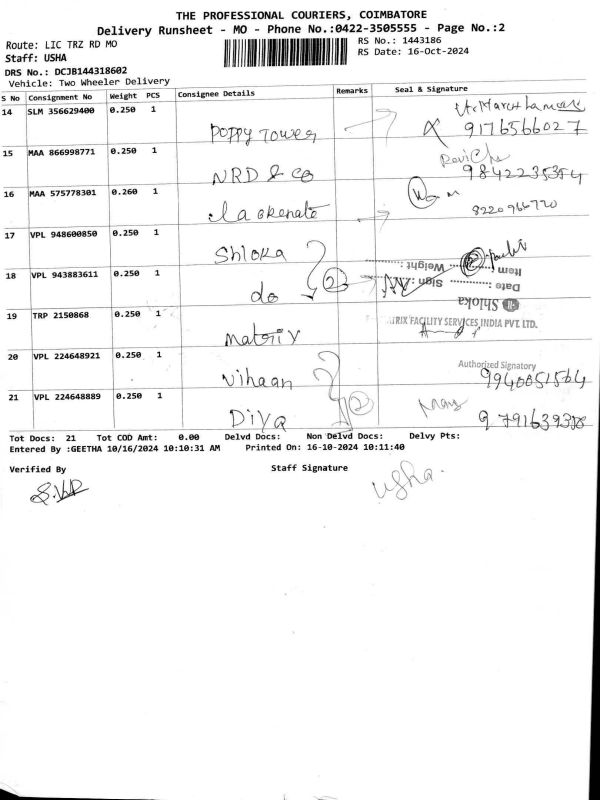 THE PROFESSIONAL COURIERS, COIMBATORE
Delivery Runsheet - MO - Phone No.:0422-3505555 - Page No.:2
Route: LIC TRZ RD MO
RS No.: 1443186
Staff: USHA
RS Date: 16-Oct-2024
DRS No.: DCJB144318602
Vehicle: Two Wheeler Delivery
S No Consignment No Weight PCS Consignee Details Remarks Seal & Signature
14 SLM 356629400 0.250 1 Poppy Tower 9176566027
15 MAA 866998771 0.250 1 NRD & Co 9842235354
16 MAA 575778301 0.260 1 8220966770
17 VPL 948600850 0.250 1 Shloka
Item Weight :
18 VPL 943883611 0.250 1 do 2
Date : Sign :
Shloka
19 TRP 2150868 0.250 1 matrix
TRIX FACILITY SERVICES INDIA PVT. LTD.
Authorized Signatory
20 VPL 224648921 0.250 1 Vihaan 9940051564
21 VPL 224648889 0.250 1 Diya 2 9791639378
Tot Docs: 21 Tot COD Amt: 0.00 Delvd Docs: Non Delvd Docs: Delvy Pts:
Entered By :GEETHA 10/16/2024 10:10:31 AM Printed On: 16-10-2024 10:11:40
Verified By Staff Signature
usha.